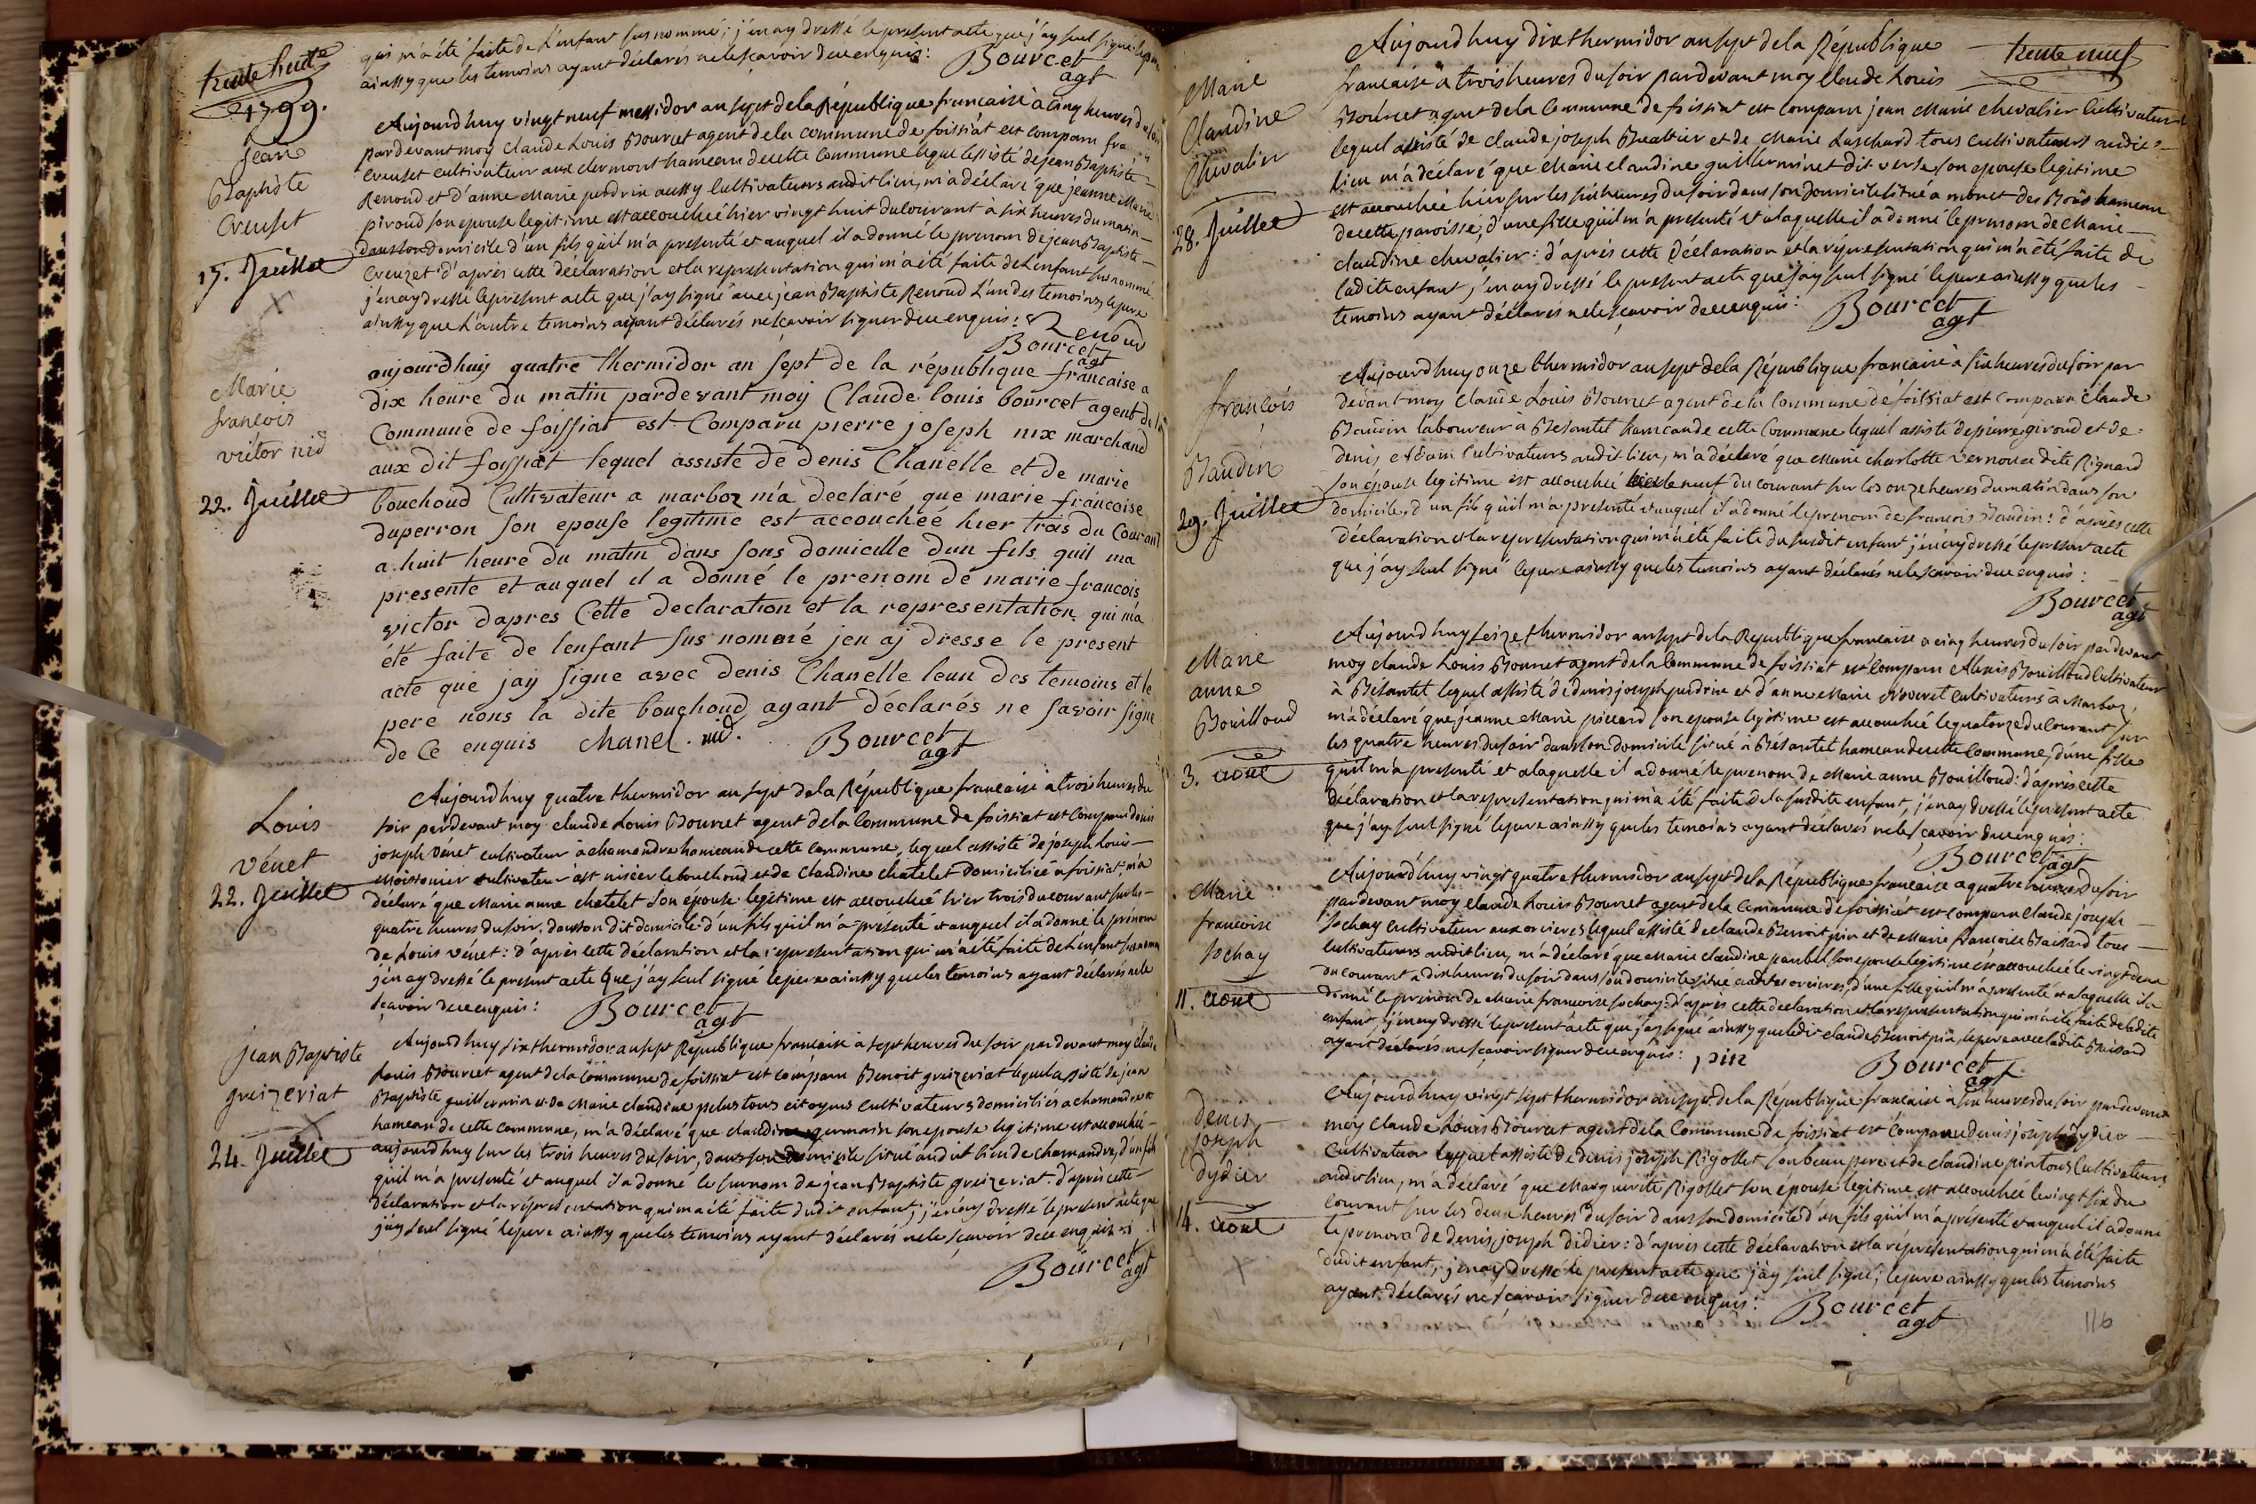 trente huit
1799.
qui m'a été faite de l'enfant sus nommé; j'en ay dressé le present acte que j'ay seul signé le pere
ainssy que les temoins ayant déclarés ne le sçavoir de ce enquis: Bourcet
agt
Jean
Baptiste
Creuset
15. Juillet
Aujourdhuy vingt neuf messidor an sept de la République francaise à cinq heures du soir
pardevant moy Claude Louis Bourcet agent de la commune de foissiat est comparu
Creuset cultivateur aux clermont hameau de cette commune lequel assisté de jean Baptiste
Renoud et d'anne Marie perdrix aussy Cultivateurs audit lieu, m'a déclaré que jeanne Marie
piroud son epouse legitime est accouchée hier vingt huit du courant à six heures du matin
dans son domicile d'un fils qu'il m'a presenté et auquel il a donné le prenom de jean Baptiste
Creuzet d'après cette déclaration et la representation qui m'a été faite de l'enfant sus nommé
j'en ay dressé le present acte que j'ay signé avec jean Baptiste Renoud l'un des temoins, le pere
ainssy que l'autre temoins ayant déclarés ne sçavoir signer de ce enquis: Renoud
Bourcet
agt
Marie
francois
victor nid
22. Juillet
aujourdhuy quatre thermidor an sept de la république francaise a
dix heure du matin pardevant moy Claude louis bourcet agent de la
Commune de foissiat est Comparu pierre joseph nix marchand
aux dit foissiat lequel assiste de denis Chanelle et de marie
bouchoud Cultivateur a marboz m'a declaré que marie francoise
duperron son epouse legitime est accouchéé hier trois du Courant
a huit heure du matin dans sons domicille dun fils quil ma
presente et auquel il a donné le prenom de marie francois
victor dapres Cette declaration et la representation qui m'a
été faite de lenfant sus nommé jen aj dresse le present
acte que jay signe avec denis Chanelle leun des temoins et le
pere nons la dite bouchoud ayant déclarés ne savoir signe
de Ce enquis Chanel. nid. Bourcet
agt
Louis
vénet
22. Juillet
Aujourdhuy quatre thermidor an sept de la République francaise à trois heures du
soir pardevant moy claude Louis Bourcet agent de la Commune de foissiat est Comparu denis
joseph vénet cultivateur à chamandre hameau de cette commune, lequel assisté de joseph Louis
Moissonier cultivateur à st nizier le bouchoud et de Claudine chatelet domiciliée à foissiat, m'a
déclaré que Marie anne chatelet son épouse legitime est accouchée hier trois du courant sur les
quatre heures du soir dans son dit domicile d'un fils qu'il m'a présenté et auquel il a donné le prenom
de Louis vénet: d'après cette déclaration et la representation qui m'a été faite de l'enfant sus nommé
j'en ay dressé le present acte que j'ay seul signé le pere ainssy que les temoins ayant déclarés ne le
sçavoir de ce enquis: Bourcet
agt
jean Baptiste
greizeriat
24. Juillet
Aujourdhuy six thermidor an sept République francaise à sept heures du soir pardevant moy claude
Louis Bourcet agent de la Commune de foissiat est comparu Benoit greizeriat lequel assisté de jean
Baptiste guillermin et de Marie claudine pelus tous citoyens cultivateurs domiciliés a chamandre
hameau de cette commune, m'a déclaré que claudine germain son epouse legitime est accouchée
aujourdhuy sur les trois heures du soir, dans son domicile situé audit lieu de chamandre, d'un fils
qu'il m'a presenté et auquel il a donné le surnom de jean Baptiste greizeriat. d'après cette
déclaration et la répresentation qui m'a été faite dudit enfant, j'en ay dressé le present acte que
j'ay seul signé le pere ainssy que les temoins ayant déclarés ne le sçavoir de ce enquis:
Bourcet
agt
trente neuf
Marie
Claudine
Chevalier
28. Juillet
Aujourdhuy dix thermidor an sept de la République
francaise à trois heures du soir pardevant moy Claude Louis
Bourcet agent de la Commune de foissiat est comparu jean Marie chevalier Cultivateur
lequel assisté de Claude joseph Buathier et de Marie Luschard tous cultivateurs audit
lieu m'a déclaré que Marie claudine guillerminet dit verse son epouse legitime
est accouchée hier sur les six heures du soir dans son domicile situé a monet des Bois hameau
de cette paroisse, d'une fille qu'il m'a presenté et a laquelle il a donné le prenom de Marie
claudine chevalier: d'après cette déclaration et la répresentation qui m'a été faite de
ladite enfant, j'en ay dressé le present acte que j'ay seul signé le pere ainssy que les
temoins ayant déclarés ne le sçavoir de ce enquis: Bourcet
agt
francois
Baudin
29. Juillet
Aujourdhuy onze thermidor an sept de la République francaise à six heures du soir par
devant moy Claude Louis Bourcet agent de la Commune de foissiat est comparu Claude
Baudin laboureur à Besantet hameau de cette Commune lequel assisté de pierre giroud et de
denis Adam Cultivateurs audit lieu, m'a déclaré que Marie charlotte vernoux dete Rignard
son épouse legitime est accouchée le neuf du courant sur les onze heures du matin dans son
domicile, d'un fils qu'il m'a presenté et auquel il a donné le prenom de francois Baudin: d'après cette
déclaration et la representation qui m'a été faite du susdit enfant j'en ay dressé le present acte
que j'ay seul signé le pere ainssy que les temoins ayant déclarés ne le sçavoir de ce enquis:
Bourcet
agt
Marie
anne
Bouilloud
3. aout
Aujourdhuy seize thermidor an sept de la République francaise a cinq heures du soir pardevant
moy claude Louis Bourcet agent de la Commune de foissiat est Comparu Alexis Bouilloud Cultivateur
à Bésantet lequel assisté de denis joseph perdrix et d'anne Marie cultivateurs à Marboz,
m'a déclaré que jeanne Marie piccard son epouse legitime est accouchée le quatorze du Courant sur
les quatre heures du soir dans son domicile situé à Bésantet hameau de cette Commune, d'une fille
qu'il m'a presenté et a laquelle il a donné le prenom de Marie anne Bouilloud: d'après cette
déclaration et la representation qui m'a été faite de la susdite enfant, j'en ay dressé le present acte
que j'ay seul signé le pere ainssy que les temoins ayant déclarés ne le sçavoir de ce enquis:
Bourcet
agt
Marie
francoise
Sochay
11. aout
Aujourdhuy vingt quatre thermidor an sept de la République francaise a quatre heures du soir
pardevant moy Claude Louis Bourcet agent de la Commune de foissiat est comparu Claude joseph
Sochay Cultivateur aux orcieres lequel assisté de claude Benoit pin et de Marie francoise Baissard tous
cultivateurs audit lieu, m'a déclaré que Marie claudine son epouse legitime est accouchée le vingt deux
du courant a dix heures du soir dans son domicile situé auxdites orcieres, d'une fille qu'il m'a presenté et a laquelle il a
donné le prenom de Marie francoise Sochay: d'après cette declaration et la representation qui m'a été faite de ladite
enfant, j'en ay dressé le present acte que j'ay signé ainssy que ledit claude Benoit pin, le pere avec ladite Baissard
ayant déclarés ne sçavoir signer de ce enquis: pin Bourcet
agt
denis
joseph
dydier
14. aout
Aujourdhuy vingt sept thermidor an sept de la République francaise à six heures du soir pardevant
moy Claude Louis Bourcet agent de la Commune de foissiat est comparu denis joseph dydier
Cultivateur lequel assisté de denis joseph Rigollet son beau pere et de claudine pin tous Cultivateurs
audit lieu, m'a déclaré que Marguerite Rigollet son épouse legitime est accouchée le vingt six du
courant sur les deux heures du soir dans son domicile d'un fils qu'il m'a présenté et auquel il a donné
le prenom de denis joseph didier: d'après cette déclaration et la répresentation qui m'a été faite
dudit enfant, j'en ay dressé le present acte que j'ay seul signé, le pere ainssy que les temoins
ayant déclarés ne sçavoir signer de ce enquis: Bourcet
agt
116